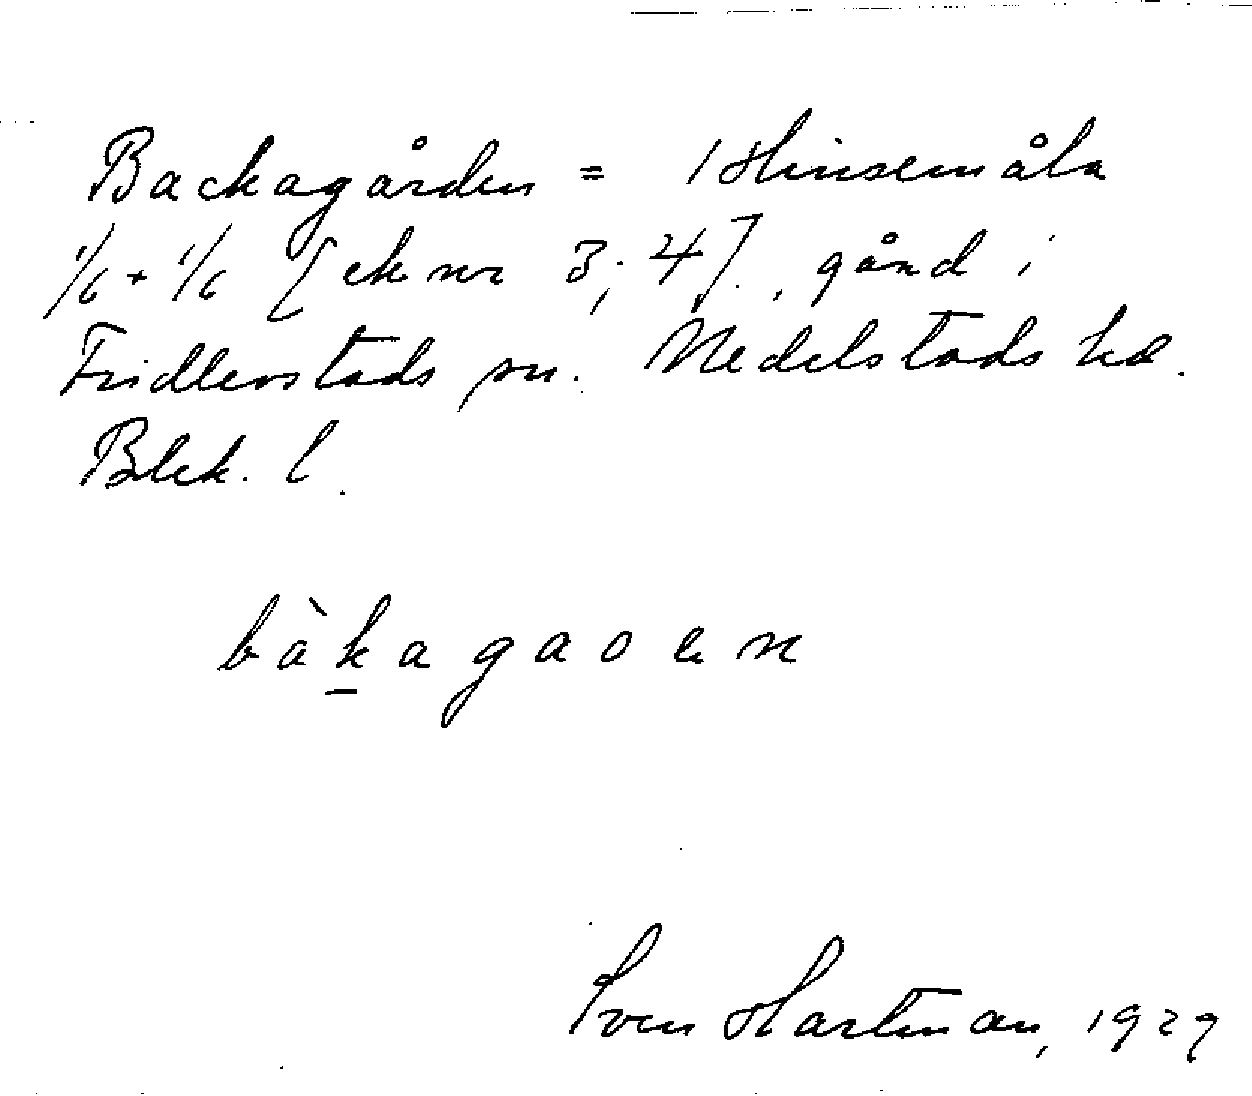 Backagården = 1 Hinsemåla
1/6 + 1/6 [ek nr 3; 4]., gård i
Fridlevstads sn. Medelstads hd.
Blek. l.
bàkagaoen
Sven Hartman, 1929